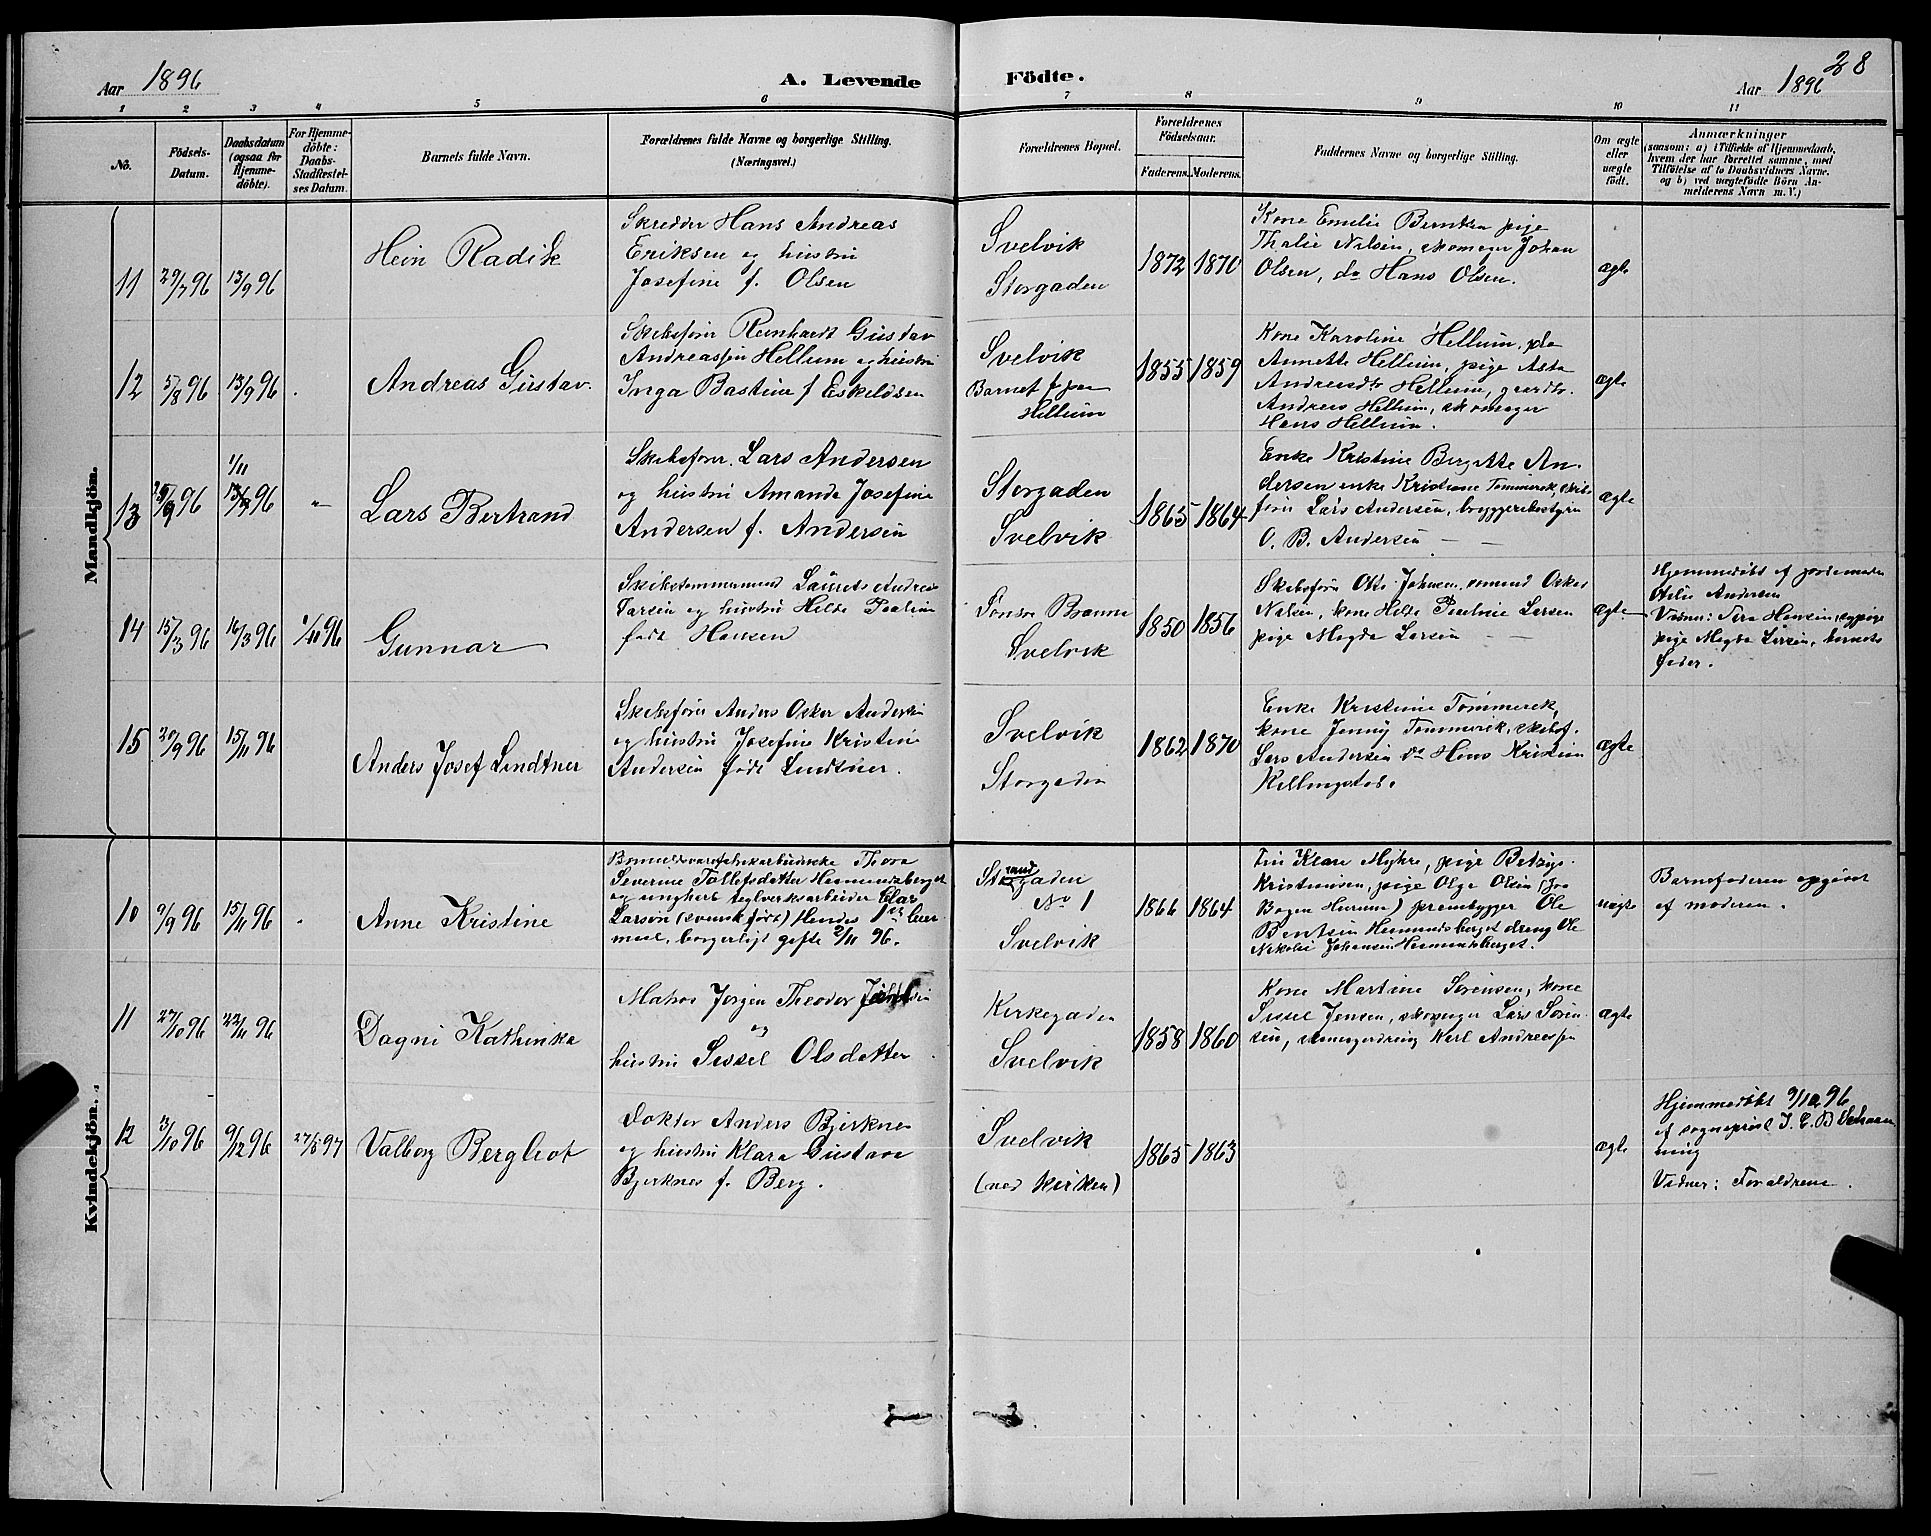 Aar 1896
A. Levende
Födte.
Aar 1896
28
1 2 3 4 5 6 7 8 9 10 11
No.
Födsels-
Datum.
Daabsdatum
(ogsaa for
Hjemme-
döbte).
For Hjemme-
döbte:
Daabs-
Stadfæstel-
ses Datum.
Barnets fulde Navn.
Forældrenes fulde Navne og borgerlige Stilling.
(Næringsvei.)
Forældrenes Bopæl.
Forældrenes
Födselsaar.
Faderens.
Moderens.
Faddernes Navne og borgerlige Stilling.
Om ægte
eller
uægte
födt.
Anmærkninger
(saasom: a) i Tilfælde af Hjemmedaab,
hvem der har forrettet samme, med
Tilföielse af to Daabsvidners Navne.
og b) ved uægtefödte Börn An-
melderens Navn m. V.)
Mandkjön.
11
29/7 96
13/9 96
Hein Radik
Skredder Hans Andreas
Eriksen og hustru
Josefine f. Olsen
Svelvik
Storgaden
1872
1870
Kone Emilie Berntsen pige
Thalie Nilsen, skomager Johan
Olsen, do Hans Olsen.
ægte
12
5/8 96
13/9 96
Andreas Gustav.
Skibsfører Reinhardt Gustav
Andreassen Hellum og hustru
Inga Bastine f Eskildsen
Svelvik
Barnet f. paa
Hellum
1855
1859
Kone Karoline Hellum, pige
Annette Hellum, pige Asta
Andreasdtr Hellum, gaardbr.
Andreas Hellum, skomager
Hans Hellum.
ægte
13
/9 96
1/11
13/9 96
"
Lars Bertrand
Skibsfører. Lars Andersen
og hustru Amanda Josefine
Andersen f. Andersen
Storgaden
Svelvik
1865
1864
Enke Kristine Bergette An-
dersen enke Kristiane Tømmerek, skibs
fører Lars Andersen, bryggeribestyrer
O. B. Andersen — —
ægte
14
15/3 96
16/3 96
1/11 96
Gunnar
Skibstømmermand Laurits Andreas
Larsen og hustru Helle Pauline
født Hansen
Søndre Branne
Svelvik
1850
1856
Skibsfører Otto Johnsen, sømand Oskar
Nilsen, kone Helle Pauline Larsen
pige Magda Larsen — —
ægte
Hjemmedøbt af jordemoder
Andersen
Vidner: Hansen, sypige
pige Magda Larsen, barnets
fader.
15
20/9 96
15/11 96
Anders Josef Lindtner
Skibsfører Anders Oskar Andersen
og hustru Josefine Kristine
Andersen født Lindtner.
Svelvik
Storgaden
1862
1870
Enke Kristine Tømmerek,
kone Jenny Tømmerek, skibsf.
Lars Andersen do Hans Kristian
Killingstad.
ægte
Kvindekjön.
10
9/9 96
15/11 96
Anne Kristine
Bomuldsvarefabrikarbeiderske Thora
Severine Tollefsdatter Hesmundsberget
og ungkarl teglverksarbeider Carl
Larson (svensk født) Hendes 1ste leier
maal, borgerligt gifte 2/11 96.
Strandgaden
No 1
Svelvik
1866
1864
Fru Klara Myhre, pige Betzy
Kristiansen, pige Olga Olsen (fra
Bogen Hurum) prambygger Ole
Bentsen Hesmundsberget dreng Ole
Nikolai Johansen Hesmundsberget.
uægte
Barnefaderen opgivet
af moderen.
11
27/10 96
22/11 96
Dagni Kathinka
Matros Jørgen Theodor
og
hustru Sissel Olsdatter
Kirkegaden
Svelvik
1858
1860
Kone Martine Sørensen, kone
Sissel Jensen, skomager Lars Søren-
sen, skomagerdreng Karl Andreassen
ægte
12
3/10 96
9/12 96
27/5 97
Valborg Bergliot
Doktor Anders Bjerknes
og hustru Klara Gustava
Bjerknes f. Berg.
Svelvik
(ved kirken)
1865
1863
ægte
Hjemmedøbt 9/12 96
af sogneprest J. E. B. Schaan
ning
Vidner: Forældrene.